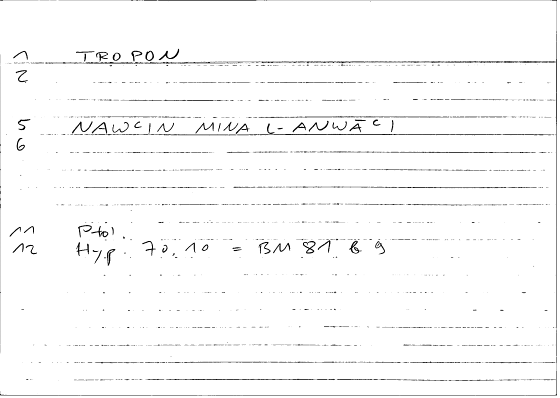 1 TROPON
2
5 NAWᶜIN MINA L-ANWĀᶜI
6
11 Ptol.
12 Hyp. 70.10 = BM 81 b 9